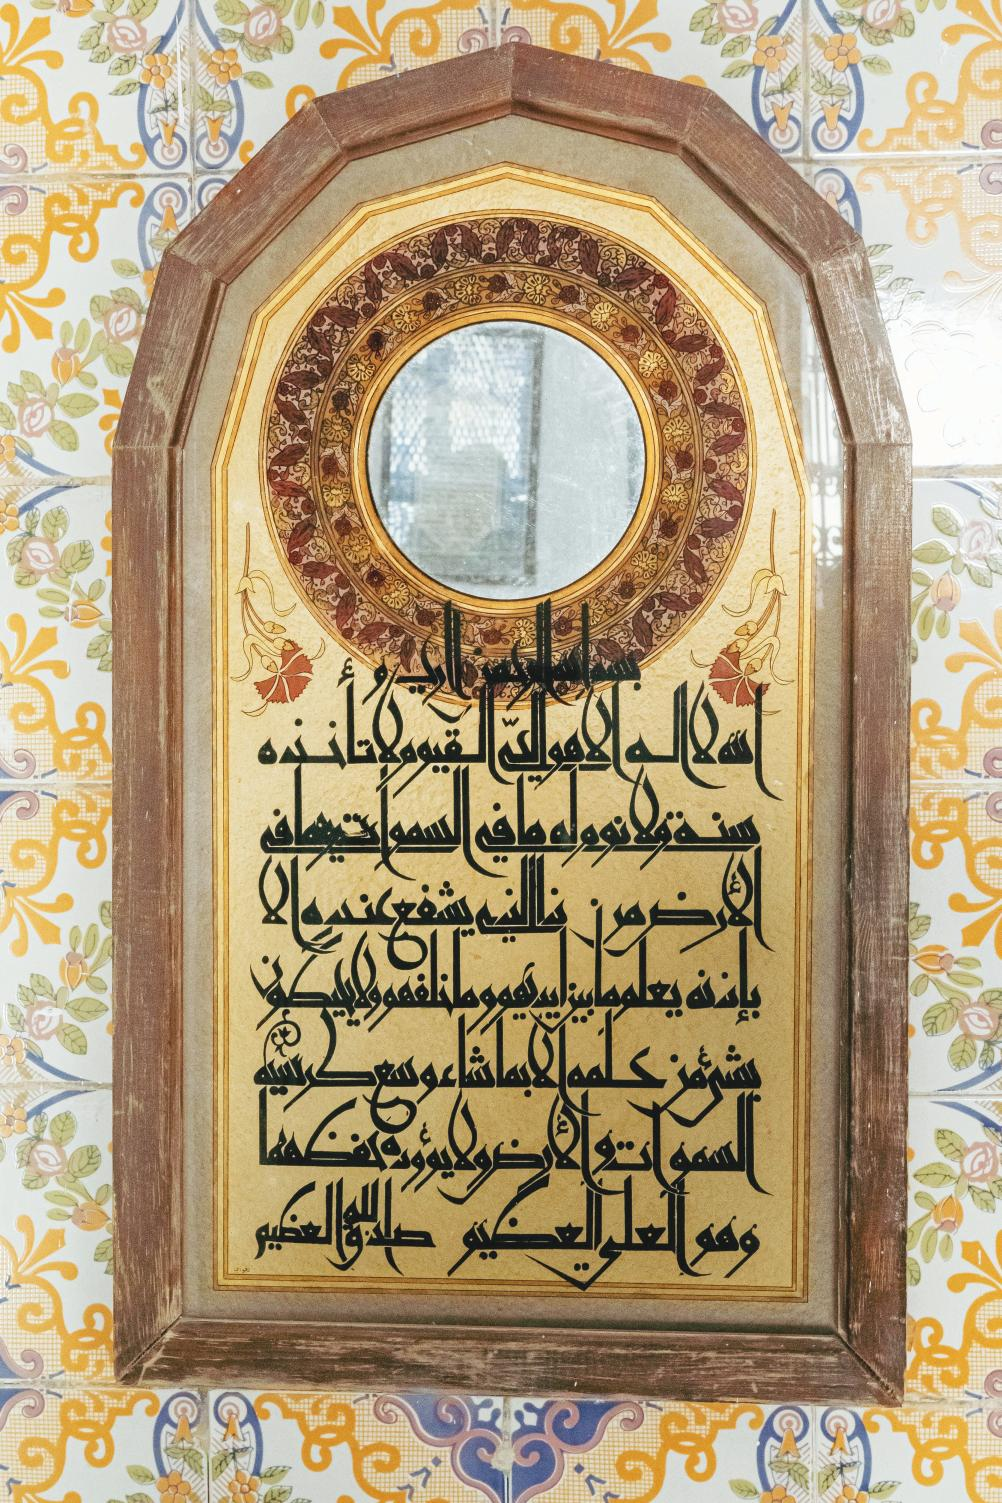 بسم الله الرحمن الرحيم
الله لا إله إلا هو الحيّ القيوم لا تأخذه
سنة ولا نوم له ما في السموات وما في
الأرض من ذا الذي يشفع عنده إلا
بإذنه يعلم ما بين أيديهم وما خلفهم ولا يحيطون
بشئ من علمه إلا بما شاء وسع كرسيه
السموات والأرض ولا يؤوده حفظهما
وهو العلي العظيم صدق الله العظيم